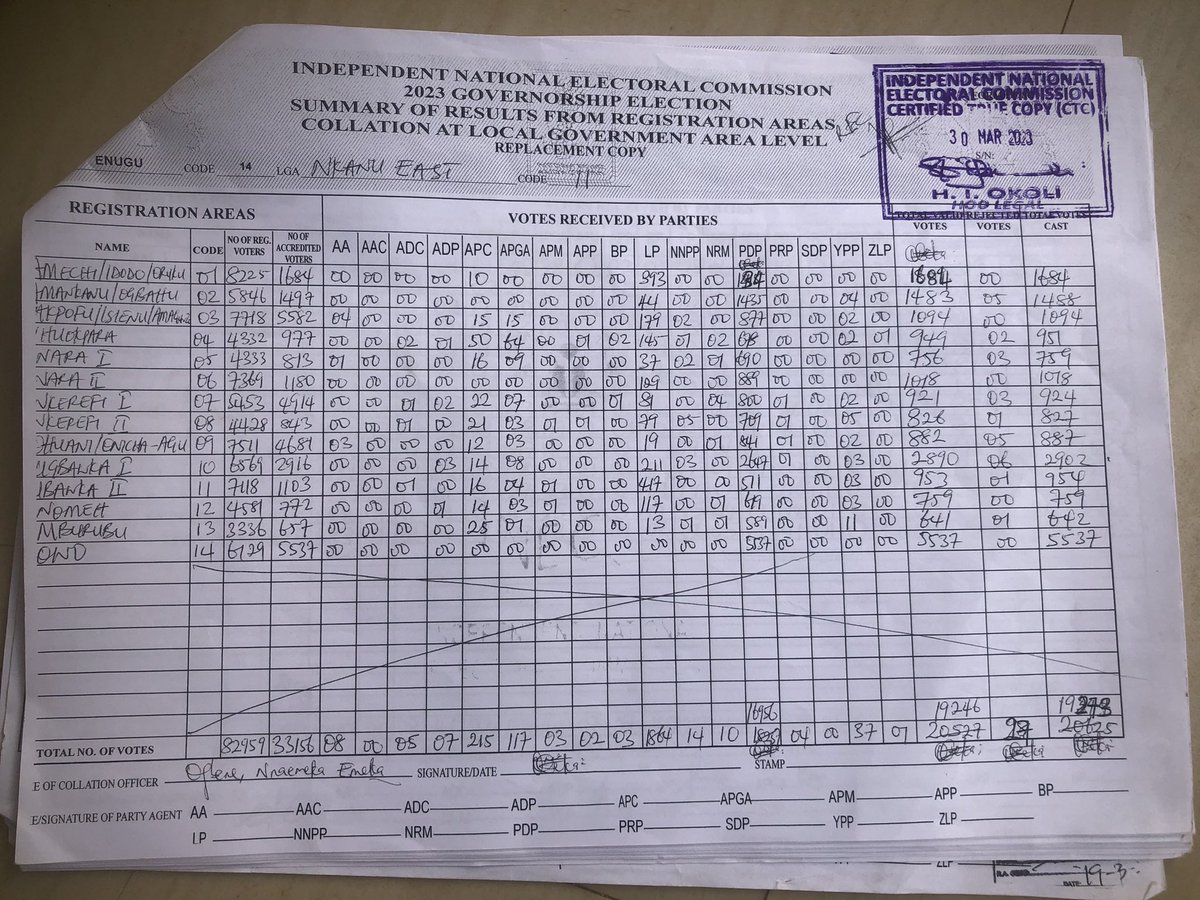 INDEPENDENT NATIONAL ELECTORAL COMMISSION
2023 GOVERNORSHIP ELECTION
SUMMARY OF RESULTS FROM REGISTRATION AREAS
COLLATION AT LOCAL GOVERNMENT AREA LEVEL
REPLACEMENT COPY
INDEPENDENT NATIONAL
ELECTORAL COMMISSION
CERTIFIED TRUE COPY (CTC)
30 MAR 2023
S/N:
H. I. OKOLI
HOD LEGAL
ENUGU CODE 14 LGA NKANU EAST CODE 11
REGISTRATION AREAS VOTES RECEIVED BY PARTIES TOTAL VALID VOTES REJECTED VOTES TOTAL VOTES CAST
NAME CODE NO OF REG. VOTERS NO OF ACCREDITED VOTERS AA AAC ADC ADP APC APGA APM APP BP LP NNPP NRM PDP PRP SDP YPP ZLP
MECHI/IDODO/ORUKU 01 8225 1684 00 00 00 00 10 00 00 00 00 393 00 00 00 00 00 00 1684 00 1684
MANKANU/OGBAHU 02 5846 1497 00 00 00 00 00 00 00 00 00 44 00 00 1435 00 00 04 00 1483 05 1488
03 7718 5582 04 00 00 00 15 15 00 00 00 179 02 00 877 00 00 02 00 1094 00 1094
04 4332 977 00 00 02 01 50 64 00 01 02 145 01 02 678 00 00 02 01 949 02 951
NARA I 05 4333 813 01 00 00 00 16 09 00 00 00 37 02 01 690 00 00 00 00 756 03 759
NARA II 06 7369 1180 00 00 00 00 00 00 00 00 00 129 00 00 889 00 00 00 00 1018 00 1018
NKEREFI I 07 5453 4914 00 00 01 02 22 07 00 00 01 81 00 04 800 01 00 02 00 921 03 924
NKEREFI II 08 4428 843 00 00 01 00 21 03 01 01 00 79 05 00 709 01 00 05 00 826 01 827
IHUANI/ONICHA-AGU 09 7511 4681 03 00 00 00 12 03 00 00 00 19 00 01 841 01 00 02 00 882 05 887
UGBANKA I 10 6569 2916 00 00 00 03 14 08 00 00 00 211 03 00 2647 01 00 03 00 2890 06 2902
IBANKA II 11 7118 1103 00 00 01 00 16 04 01 00 00 417 00 00 511 00 00 03 00 953 01 954
NOMEH 12 4581 772 00 00 00 01 14 03 01 00 00 117 00 01 619 00 00 03 00 759 00 759
MBURUBU 13 3336 657 00 00 00 00 25 01 00 00 00 13 01 01 589 00 00 11 00 641 01 642
OWO 14 6129 5537 00 00 00 00 00 00 00 00 00 00 00 00 5537 00 00 00 00 5537 00 5537
16956 19246
TOTAL NO. OF VOTES 82959 33156 08 00 05 07 215 117 03 02 03 1864 14 10 04 00 37 01 20527
E OF COLLATION OFFICER Ogbene, Nnaemeka Emeka SIGNATURE/DATE STAMP
E/SIGNATURE OF PARTY AGENT AA AAC ADC ADP APC APGA APM APP BP
LP NNPP NRM PDP PRP SDP YPP ZLP
ZLP
DATE 19-3-